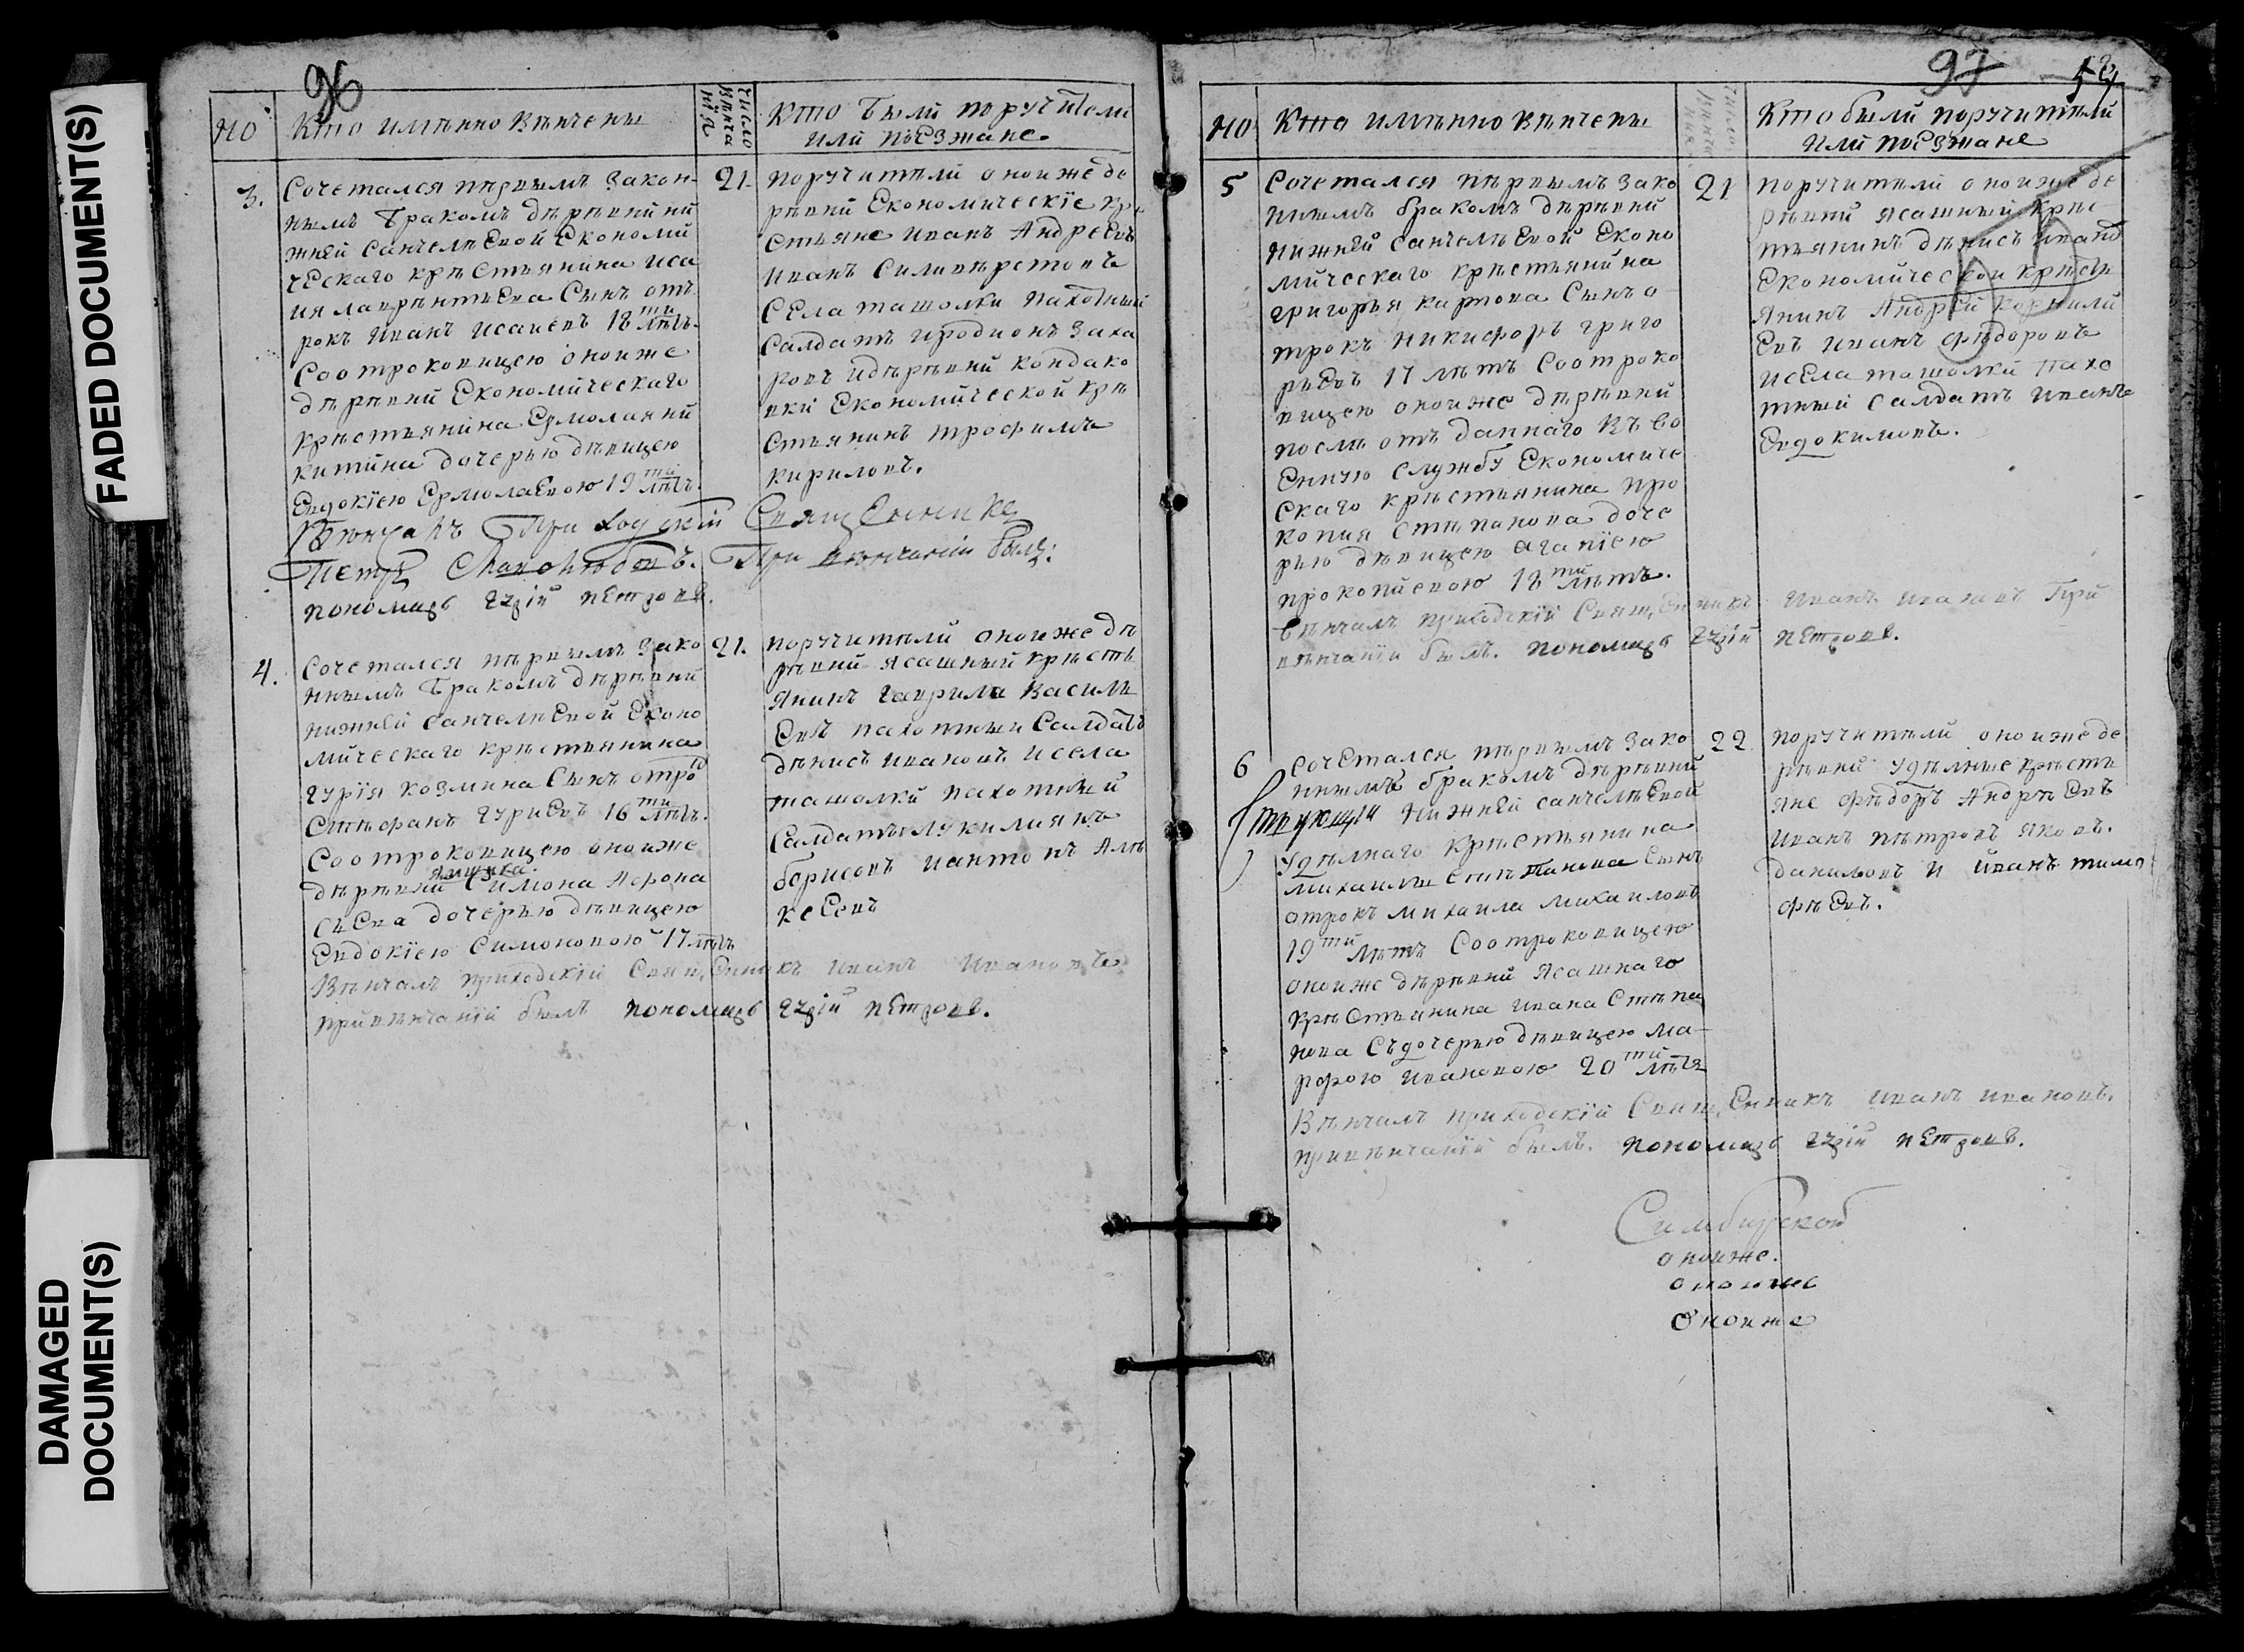 FADED DOCUMENT(S)
DAMAGED
DOCUMENT(S)
96
№
Кто имѣнно вѣнчены
число
вѣнча
нїя
Кто были поручители
или поѣзжане.
3.
Сочетался пѣрвымъ закон-
нымъ бракомъ дѣрѣвни ни
жней Санчелѣевой Економи
ческаго крѣстьянина Иса
ия лаврѣнтьева Сынъ от
рокъ Иванъ Исаиевъ 18ти лѣтъ.
Соотроковицею оной же
дѣрѣвни Економическаго
крѣстьянина Ермолая ни
китина дочерью дѣвицею
Евдокїею Ермолаевою 19ти лѣтъ.
21.
поручители оной же де
рѣвни Економическїе кре
стьяне Иванъ Андреевъ
Иванъ Силивѣрстовъ
Села ташолки пахотный
Салдатъ Иродионъ Заха
ровъ и дѣрѣвни кондако
вки Економической крѣ
стьянинъ трофимъ
кириловъ.
Вѣнчалъ Приходскїй Священникъ
Петръ При вѣнчанїи былъ:
пономарь Гурїй пЕтровъ.
4.
Сочетался пѣрвымъ зако
ннымъ бракомъ дѣрѣвни
нижней Санчелѣевой Еконо
мическаго крѣстьянина
Гурїя козмина Сынъ отро
Стѣфанъ Гуриевъ 16ти лѣтъ.
Соотроковицею оной же
дѣрѣвни Симона Афона
сьева дочерью дѣвицею
Евдокїею Симоновою 17 лѣтъ
21.
поручители оной же дѣ
рѣвни ясашный крѣсть
янинъ Гаврила Василь
евъ пахотный Салдатъ
дѣнисъ Ивановъ и села
ташолки пахотный
Салдатъ лукилиянъ
борисовъ и антонъ Але
ксеевъ
Вѣнчалъ приходскїй Священникъ Иванъ Ивановъ
при вѣнчанїи былъ пономарь Гурїй пЕтровъ.
97
№
Кто имѣнно вѣнчены
число
вѣнча
нїя
Кто были поручители
или поѣзжане
5
Сочетался пѣрвымъ зако
ннымъ бракомъ дѣрѣвни
нижней Санчелѣевой Еконо
мическаго крѣстьянина
григорья карпова Сынъ о
трокъ никифоръ григо
рьевъ 17 лѣтъ Соотроко
вицею оной же дѣрѣвни
послѣ отданнаго въ во
енную службу Економиче
скаго крѣстьянина про
копия Стѣпанова доче
рью дѣвицею агапїею
прокопиевою 18ти лѣтъ.
21
поручители оной же де
рѣвни ясашный крѣс-
тьянинъ дѣнисъ Иванов
Економической крѣсть
янинъ Андрей корнили
евъ Иванъ фѣдоровъ
и села ташолки пахо
тный Салдатъ Иванъ
Евдокимовъ.
вѣнчалъ приходскїй Священникъ Иванъ Ивановъ При
вѣнчанїи былъ. пономарь Гурїй пЕтровъ.
6
Сочетался пѣрвымъ зако
ннымъ бракомъ дѣрѣвни
нижней Санчелѣевой
Удѣлнаго крѣстьянина
михаилы Стѣпанова Сынъ
отрокъ михаила михаиловъ
19ти лѣтъ Соотроковицею
оной же дѣрѣвни ясашнаго
крѣстьянина Ивана Стѣпа
нова Съ дочерью дѣвицею ма-
рфою Ивановою 20ти лѣтъ
22
поручители оной же де
рѣвни Удѣлные крѣсть
яне фѣдоръ Андрѣевъ
Иванъ пѣтровъ яковъ.
даниловъ и Иванъ тимо
фѣевъ.
Вѣнчалъ приходскїй Священникъ Иванъ Ивановъ.
при вѣнчанїи былъ. пономарь Гурїй пЕтровъ.
Симбирской
оной же.
оной же
оной же